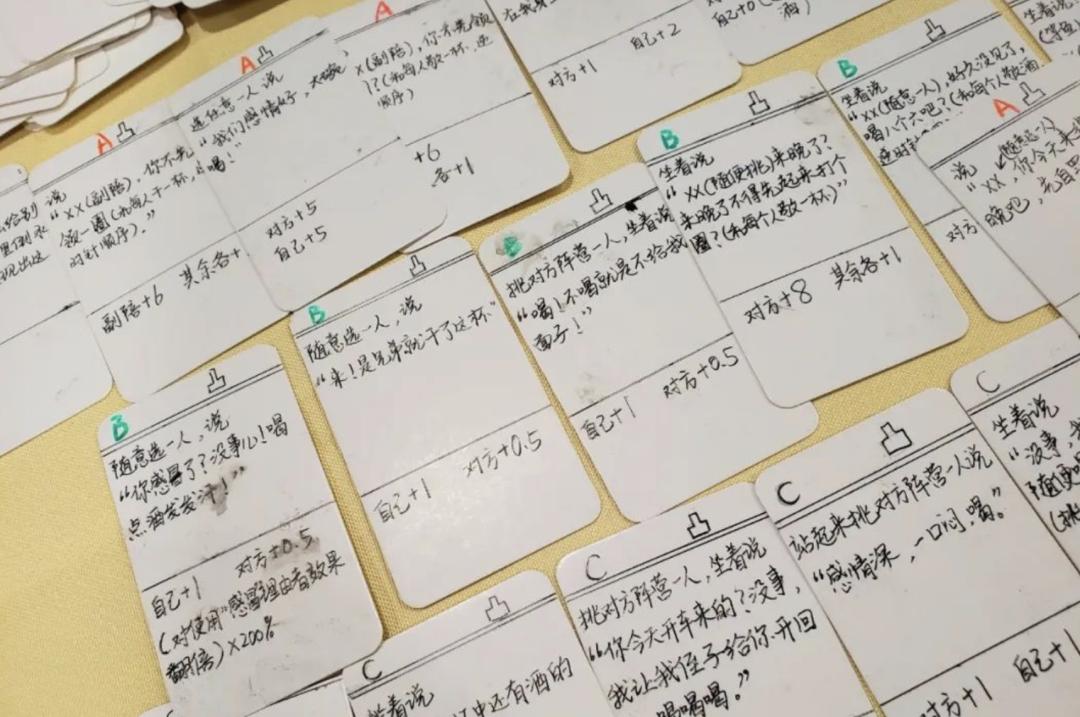 A
说
"XX(副陪),你不先
领一圈(和每人干一杯,
时针顺序)."
副陪+6 其余各+
A
选任意一人说
"我们感情好,
喝!"
对方+5
自己+5
A
X(副陪),你不先领
(和每人敬一杯,逆
顺序)
+6
各+1
自己+2
对方+1
自己+0
B
随意选一人,说
"你感冒了?没事儿!喝
点酒发发汗!"
自己+1 对方+0.5
(对使用"感冒理由者效果
翻倍)×200%
B
随意选一人,说
"来!是兄弟就干了这杯"
自己+1 对方+0.5
B
挑对方阵营一人,坐着说
"喝!不喝就是不给我
面子!"
自己+1 对方+0.5
B
坐着说
"XX(随便挑)来晚了?
来晚了不得先起来打个
圈?(和每个人敬一杯)"
对方+8 其余各+1
B
坐着说
"XX(随意一人),好久没见了,
喝几个六吧?(和每个人敬酒,
A
说 随意选一人
"XX,你今天来
晚吧,先自罚
对方
坐着说
C
坐着说
杯中还有酒的
C
挑对方阵营一人,坐着说
"你今天开车来的?没事,
我让我侄子给你开回
喝喝喝。"
C
站起来挑对方阵营一人说
"感情深,一口闷,喝。"
对方+1 自己+1
C
坐着说
"没事,
随便